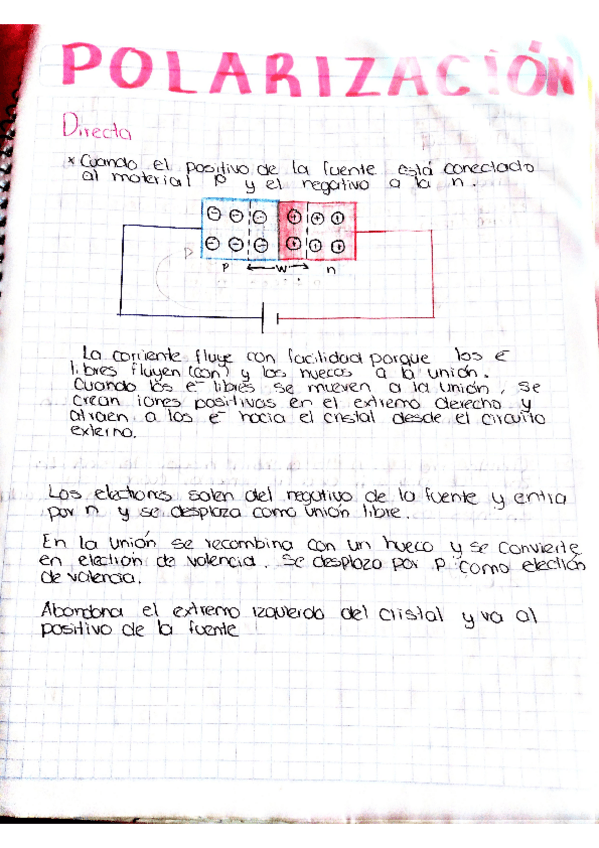 POLARIZACIÓN
Directa
* Cuando el positivo de la fuente está conectado
al material P y el negativo a la n.
P W n
La corriente fluye con facilidad porque los e⁻
libres fluyen (con) y los huecos a la unión.
Cuando los e⁻ libres se mueven a la unión, se
crean iones positivas en el extremo derecho y
atraen a los e⁻ hacia el cristal desde el circuito
externo.
Los electrones salen del negativo de la fuente y entra
por n y se desplaza como unión libre.
En la unión se recombina con un hueco y se convierte
en electrón de valencia. Se desplaza por P como electrón
de valencia.
Abandona el extremo izquierdo del cristal y va al
positivo de la fuente